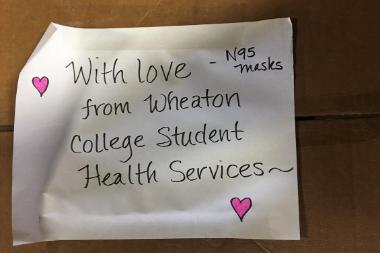 With love - N95 masks
from Wheaton
College Student
Health Services~